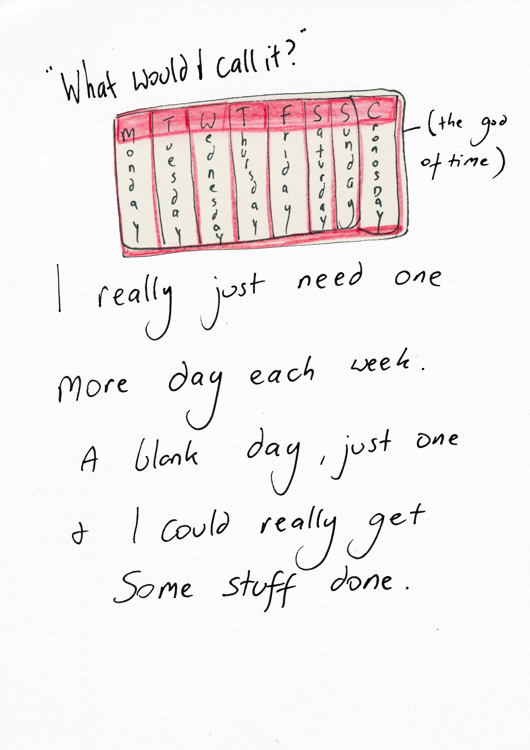 "What would I call it?"
M T W T F S S C
Monday
Tuesday
Wednesday
Thursday
Friday
Saturday
Sunday
CronosDay
(the god
of time)
I really just need one
more day each week.
A blank day, just one
& I could really get
Some stuff done.